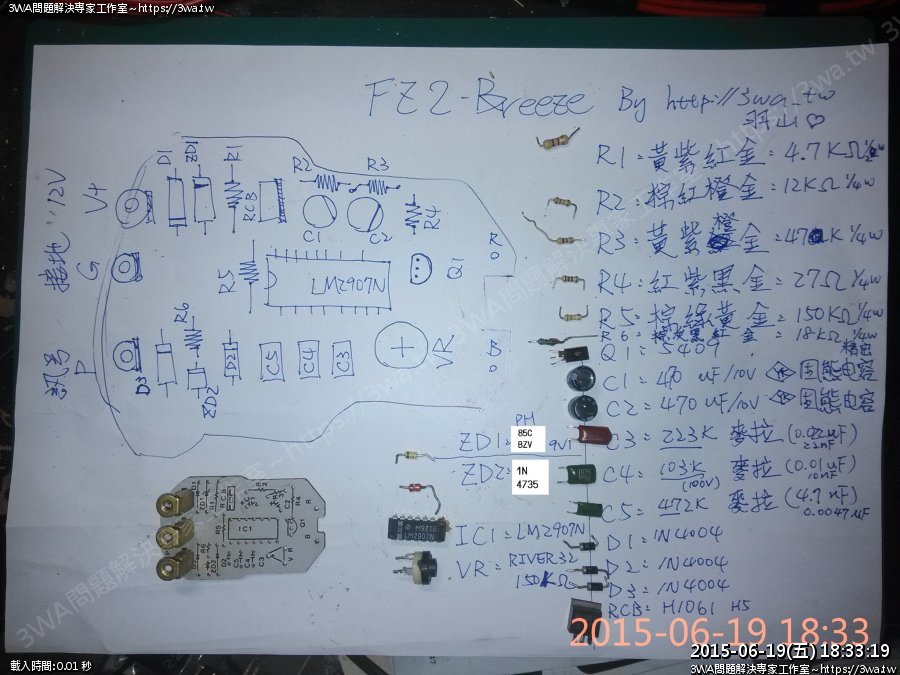 3WA問題解決專家工作室~https://3wa.tw
3WA問題解決專家工作室~https://3wa.tw
FZ2-Breeze By http://3wa.tw
羽山♡
V+ 12V
G 接地
P 訊号
D1
ZD1
R1
RCB
R2
R3
C1
C2
R4
R5
LM2907N
Q1
R
D3
R6
ZD2
D2
C5
C4
C3
VR
B
R1=黃紫紅金=4.7KΩ 1/4w
R2=棕紅橙金=12KΩ 1/4w
R3=黃紫橙金=47K 1/4w
R4=紅紫黑金=27Ω 1/4w
R5=棕綠黃金=150KΩ 1/4w
R6=棕灰黑紅金=18KΩ 1/4w
精密
Q1=5409
C1=470 uF/10V 固態电容
C2=470 uF/10V 固態电容
C3=223K 麥拉(0.022uF)
22nF
C4=103K 麥拉(0.01uF)
(100V) 10nF
C5=472K 麥拉(4.7nF)
0.0047uF
D1=1N4004
D2=1N4004
D3=1N4004
RCB=H1061 H5
PH
ZD1= 85C BZV 9V1
ZD2= 1N 4735
IC1=LM2907N
VR=RIVER32
150KΩ
M921C
LM2907N
IC1
2015-06-19 18:33
2015-06-19(五) 18:33:19
載入時間:0.01 秒
3WA問題解決專家工作室~https://3wa.tw